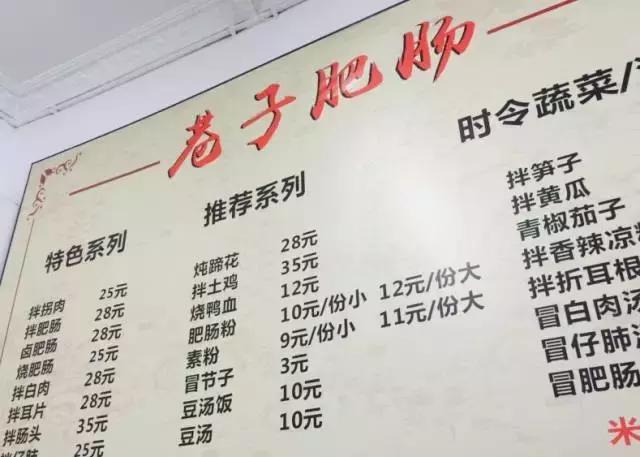 巷子肥肠
特色系列
拌拐肉 25元
拌肥肠 28元
卤肥肠 28元
烧肥肠 25元
拌白肉 28元
拌耳片 28元
拌肠头 35元
拌仔肺 25元
推荐系列
炖蹄花 28元
拌土鸡 35元
烧鸭血 12元
肥肠粉 10元/份小 12元/份大
素粉 9元/份小 11元/份大
冒节子 3元
豆汤饭 10元
豆汤 10元
时令蔬菜/
拌笋子
拌黄瓜
青椒茄子
拌香辣凉粉
拌折耳根
冒白肉汤
冒仔肺汤
冒肥肠
米